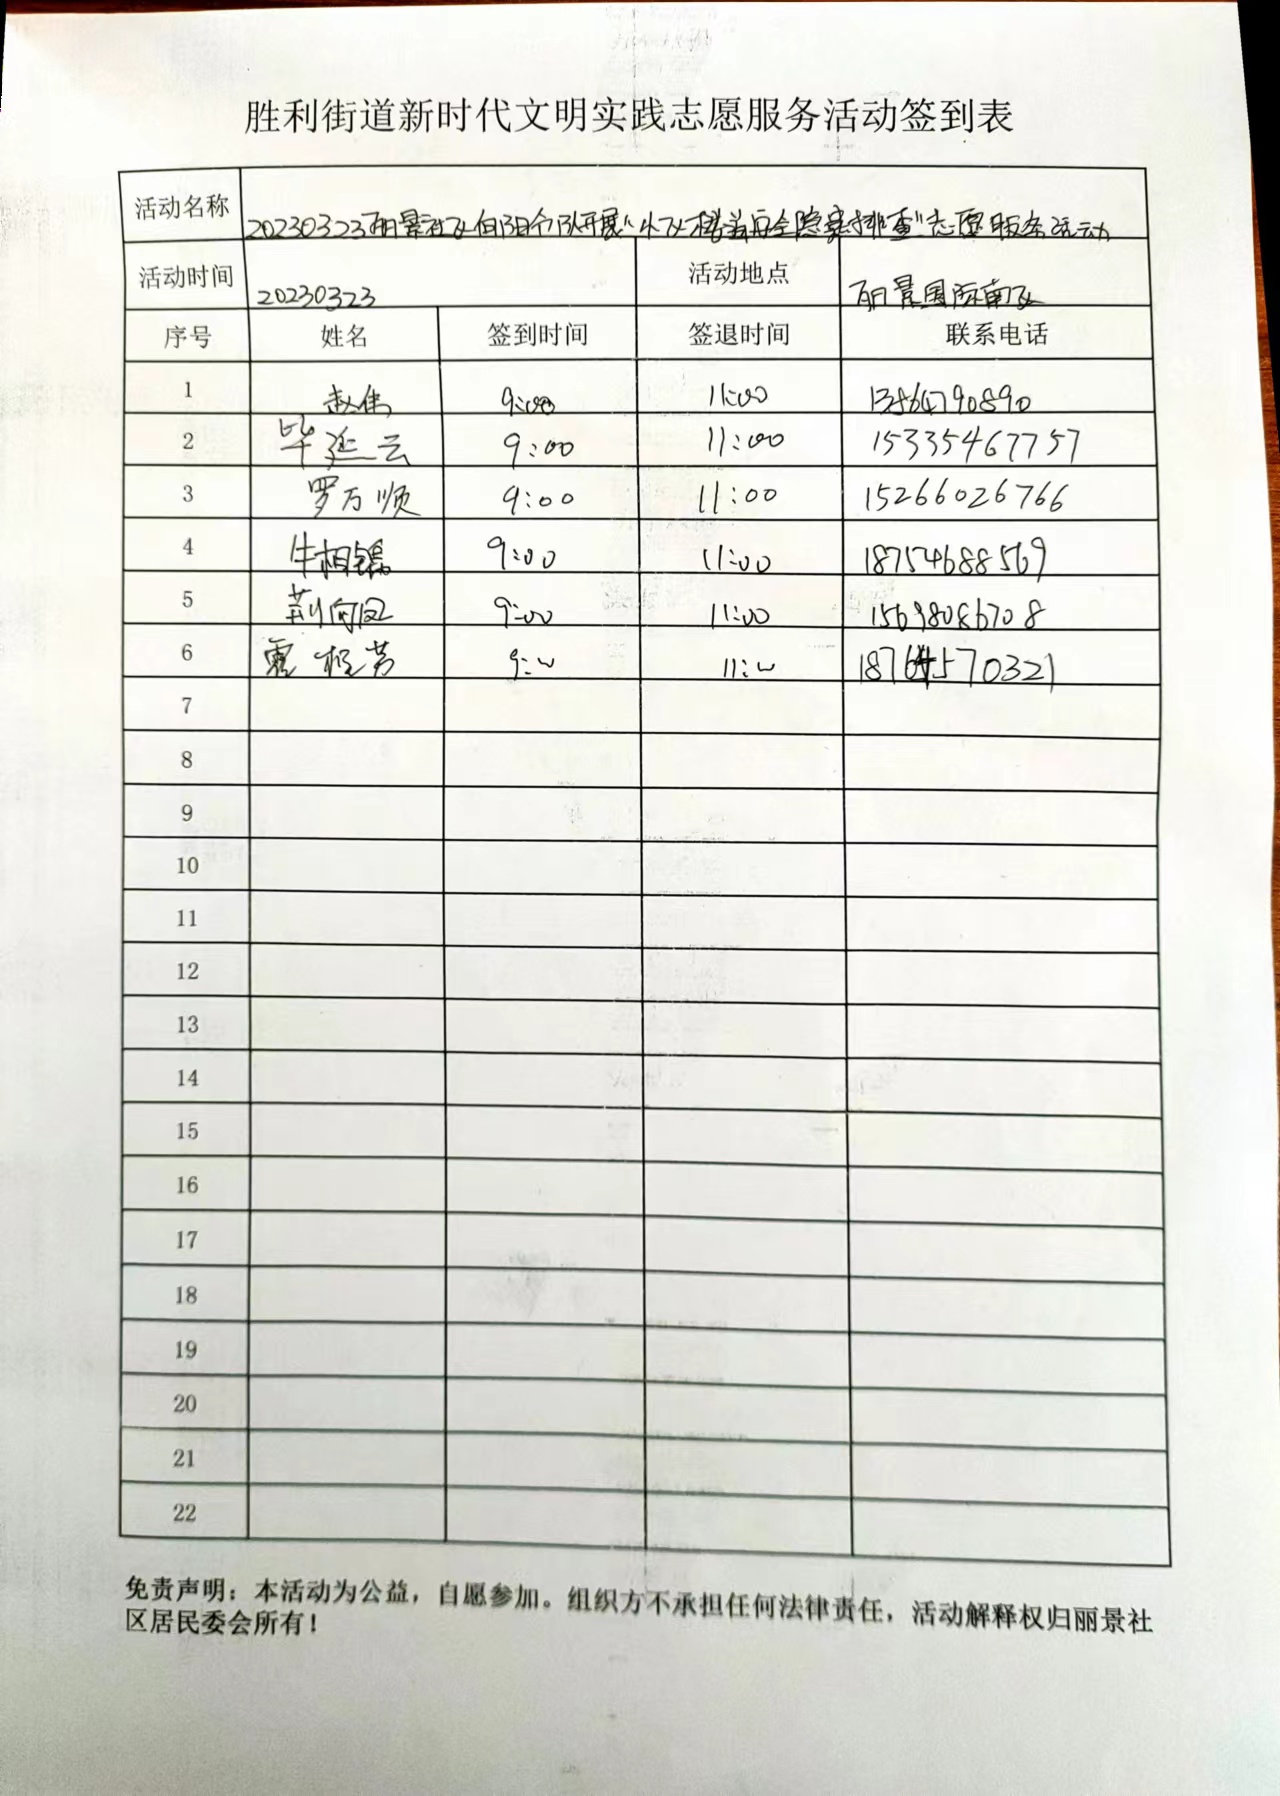 胜利街道新时代文明实践志愿服务活动签到表
活动名称 20230323丽景社区向阳分队开展“小区楼道安全隐患排查”志愿服务活动
活动时间 20230323 活动地点 丽景国际南区
序号 姓名 签到时间 签退时间 联系电话
1 赵伟 9:00 11:00 13564790890
2 毕延云 9:00 11:00 15335467757
3 罗万顺 9:00 11:00 15266026766
4 牛相锡 9:00 11:00 18754688569
5 荆向凤 9:00 11:00 15698086708
6 9:00 11:00 18764570321
7
8
9
10
11
12
13
14
15
16
17
18
19
20
21
22
免责声明：本活动为公益，自愿参加。组织方不承担任何法律责任，活动解释权归丽景社
区居民委会所有！